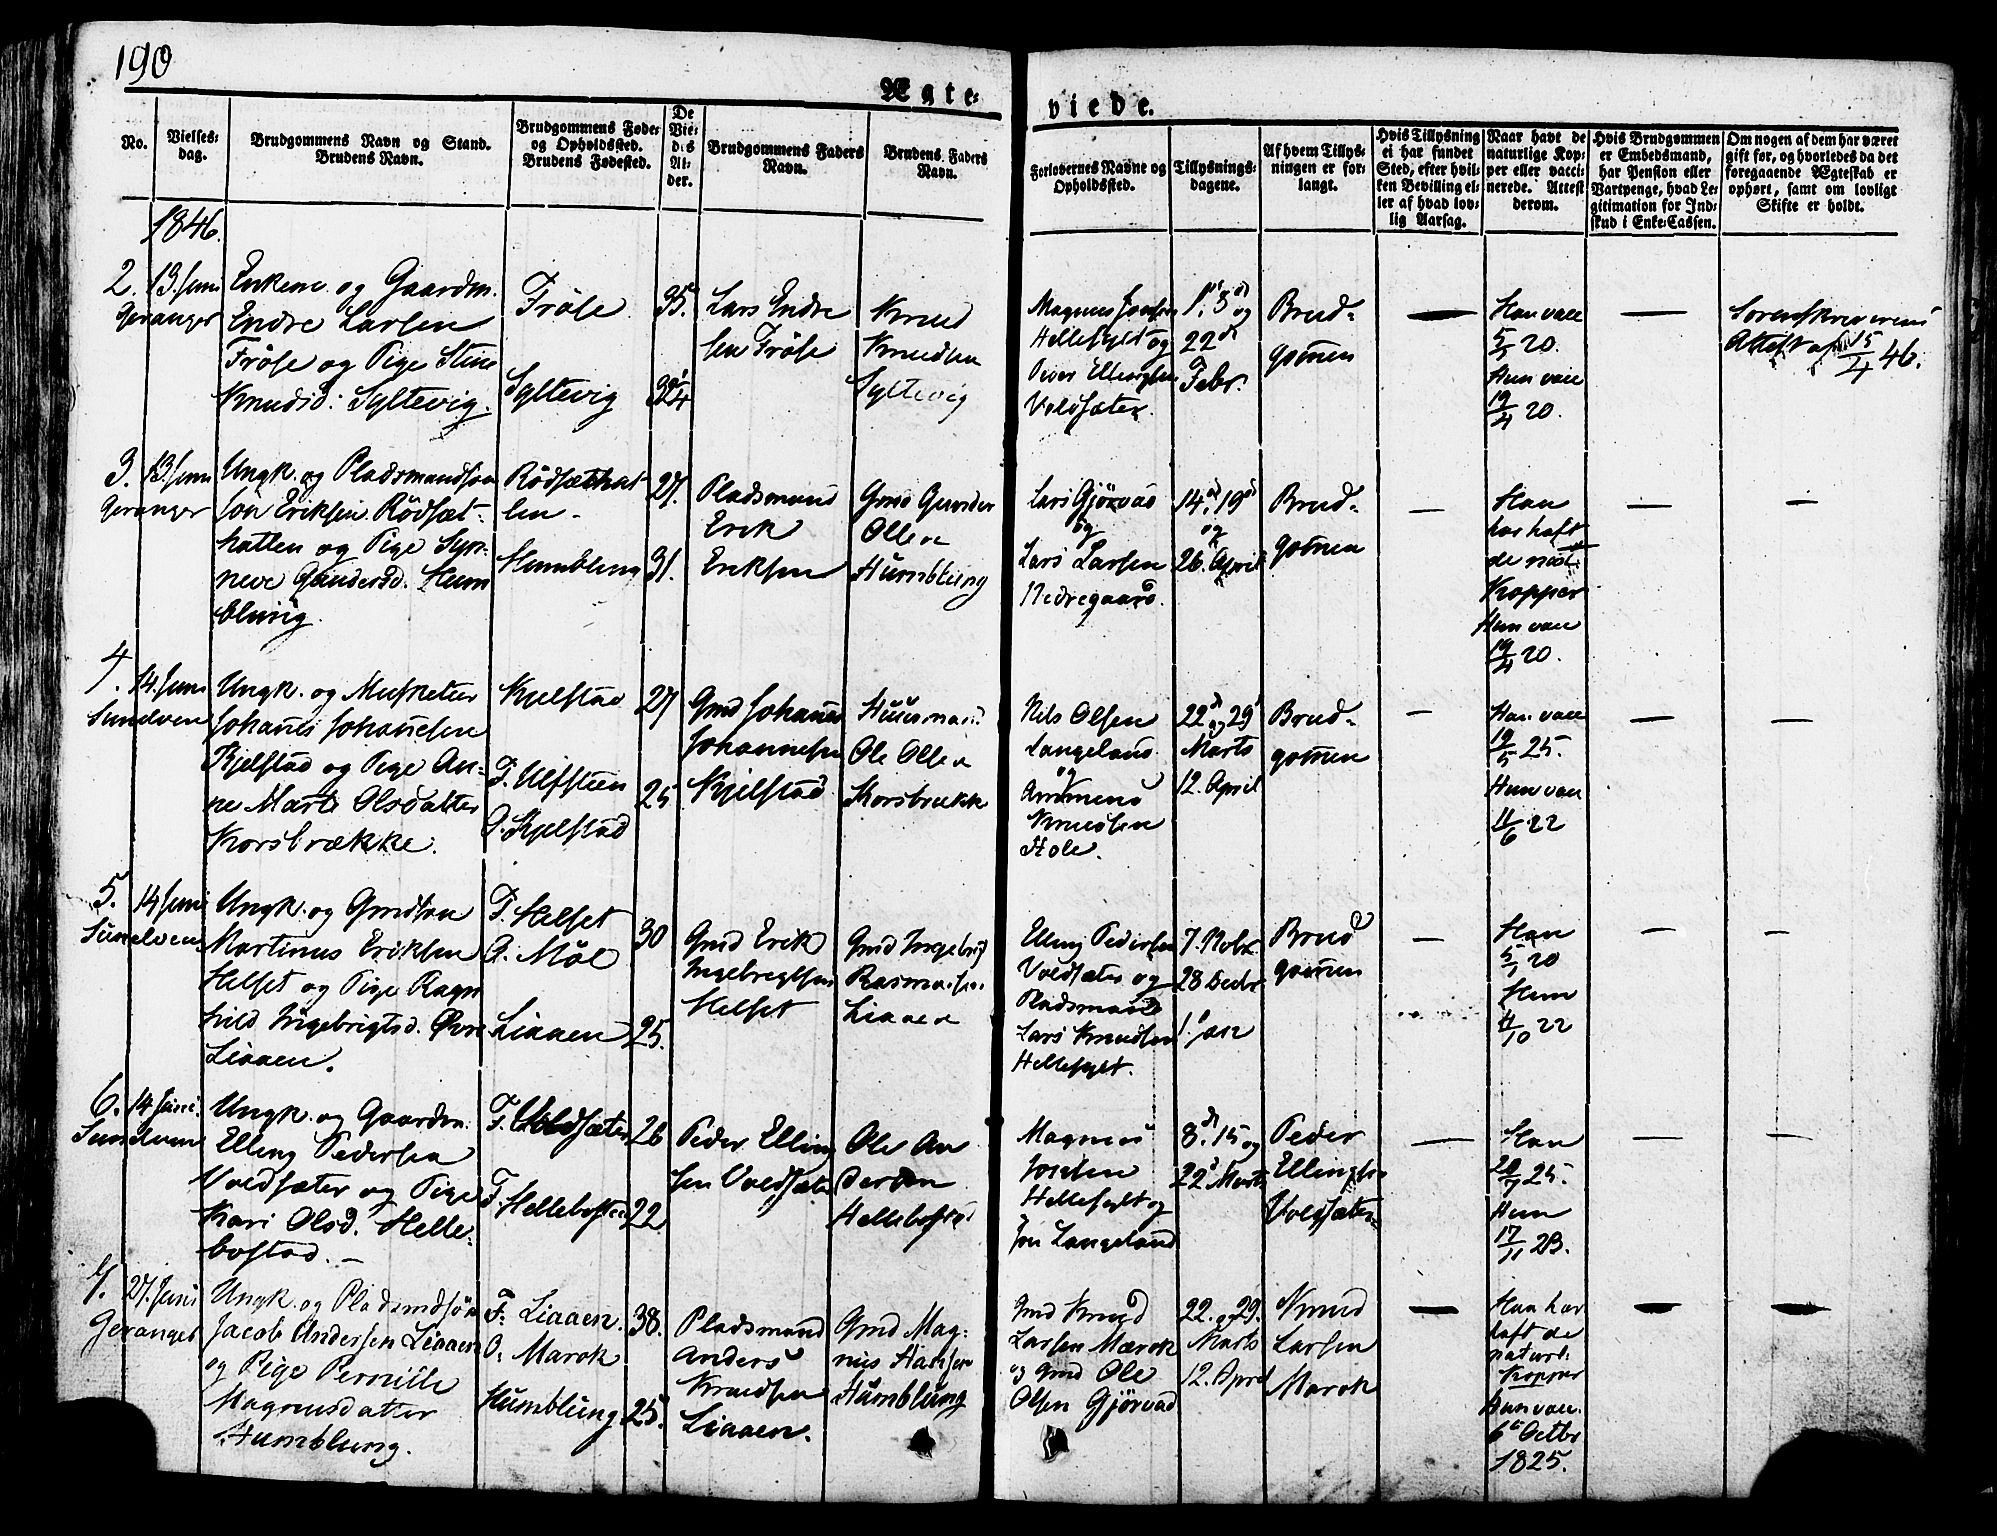 190
Ægte-
viede.
No.
Vielses-
dag.
Brudgommens Navn og Stand.
Brudens Navn.
Brudgommens Føde-
og Opholdssted.
Brudens Fødested.
De
Vie-
des
Al-
der.
Brudgommens Faders
Navn.
Brudens Faders
Navn.
Forlovernes Navne og
Opholdssted.
Tillysnings-
dagene.
Af hvem Tillys-
ningen er for-
langt.
Hvis Tillysning
ei har fundet
Sted, efter hvil-
ken Bevilling el-
ler af hvad lov-
lig Aarsag.
Naar havt de
naturlige Kop-
per eller vacci-
nerede. Attest
derom.
Hvis Brudgommen
er Embedsmand,
har Pension eller
Vartpenge, hvad Le-
gitimation for Ind-
skud i Enke-Cassen.
Om nogen af dem har været
gift før, og hvorledes da det
foregaaende Ægteskab er
ophørt, samt om lovligt
Skifte er holdt.
1846.
2.
13. Juni
Geranger
Enkem. og Gaardm.
Endre Larsen
Fröse og Pige Stine
Knudsd: Syltevig.
Fröse
Syltevig
35.
Lars Endre
sen Fröse
Knud
Knudsen
Syltevig
Magnus
Hellesylt og
Peder Ellingsen
Voldsæter.
1, 8 og
22d
Febr.
Brud-
gomen
—
Han vacc
5/5 20.
Hun vacc
19/4 20.
—
Sorenskriverens
Attest af 15/4 46.
3.
13. Juni
Geranger
Ungk. og Pladsmandsön
Jon Eriksen Rödsæt-
hatten og Pige Syn-
neve Gundersd. Hum
blung.
Rödsæthat
ten
Humblung
27.
31.
Pladsmand
Erik
Eriksen
Gmd Gunder
Olsen
Humblung
Lars Gjörvad
og
Lars Larsen
Nedregaard.
14d, 19d
og
26. April
Brud-
gomen
—
Han
har haft
de nat
Kopper
Hun vacc
19/4 20.
—
—
4.
14. Juni
Sunelven
Ungk. og Musketer
Johanes Johanesen
Kjelstad og Pige An-
ne Marte Olsdatter
Korsbrække.
Kjelstad
F. Ulfsteen
O. Kjelstad
27
25
Gmd Johanes
Johannesen
Kjelstad
Huusmand
Ole Olsen
Korsbrække
Nils Olsen
Langeland
og
Ammund
Knudsen
Hole.
22d og 29d
Marts
12. April
Brud-
gomen
—
Han vacc
19/5 25.
Hun vacc
11/6 22
—
—
5.
14 Juni
Sunelven
Ungk. og Gmdsön
Martinus Eriksen
Helset og Pige Ragn
hild Ingebrigtsd. Övre
Liaaen.
F. Helset
O. Möl
Liaaen
30
25.
Gmd Erik
Ingebrigtsen
Helset
Gmd Ingebrigt
Rasmussen
Liaaen
Elling Pedersen
Voldsæter og
Pladsmand
Lars Knudsen
Hellesylt.
7. Nobr
28 Decbr
1. Jan
Brud
gomen
—
Han
5/1 20
Hun
11/10 22
—
—
6.
14 Juni.
Sunelven
Ungk. og Gaardm.
Elling Pedersen
Voldsæter og Pige
Kari Olsd. Helle-
bostad. —
F. Voldsæter
F. Hellebostad
26
22.
Peder Elling
sen Voldsæter
Ole An
dersen
Hellebostad
Magnus
Jonsen
Hellesylt og
Jon Langeland
8d, 15 og
22d Marts
Peder
Ellingsen
Voldsæter
—
Han
20/7 25.
Hun
17/11 23.
—
—
7.
27. Juni
Geranger
Ungk. og Pladsmdsön
Jacob Andersen Liaaen
og Pige Pernille
Magnusdatter
Humblung.
F. Liaaen.
O. Marok
Humblung.
38.
25.
Pladsmand
Anders
Knudsen
Liaaen.
Gmd Mag-
nus Hansen
Humblung
Gmd Knud
Larsen Mærok
og Gmd Ole
Olsen Gjörvad
22. og 29.
Marts
12. April
Knud
Larsen
Marok
—
Han har
haft de
naturl.
Kopper
Hun vacc.
6te Octbr
1825.
—
—